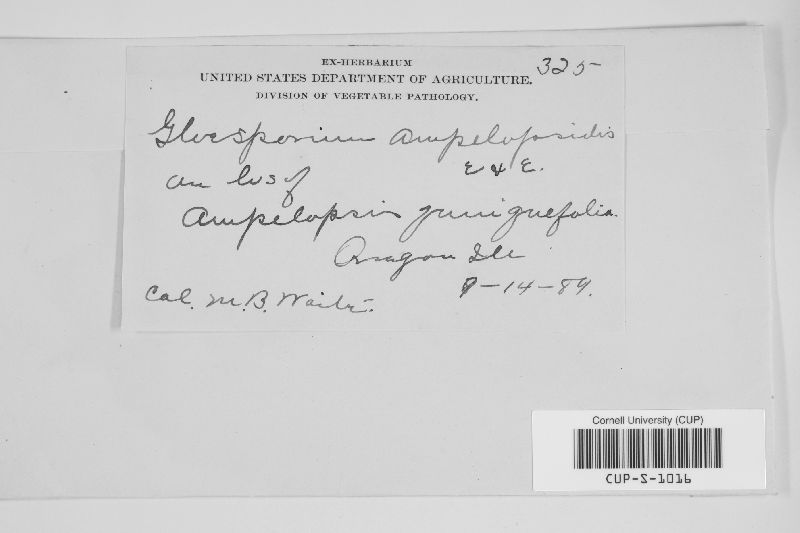 EX-HERBARIUM
UNITED STATES DEPARTMENT OF AGRICULTURE. 325
DIVISION OF VEGETABLE PATHOLOGY.
Gloesporium Ampelopsidis
E & E.
on lvs of
Ampelopsis quinquefolia.
Ill
Col. M. B. Waite. -14-89.
Cornell University (CUP)
CUP-S-1016